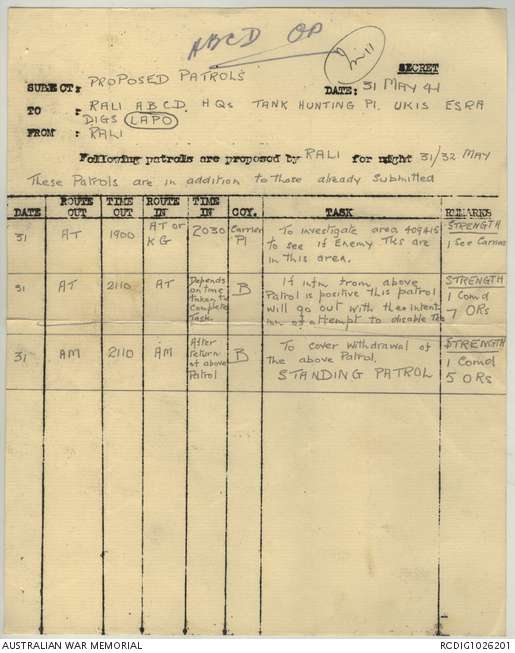 ABCD OP
SECRET
SUBJECT: PROPOSED PATROLS DATE: 31 MAY 41
TO : RALI A B C D. HQs TANK HUNTING Pl. UKIS ESRA
DIGS LAPO
FROM: RALI
Following patrols are proposed by RALI for night 31/32 MAY
These Patrols are in addition to those already submitted
DATE ROUTE OUT TIME OUT ROUTE IN TIME IN COY. TASK REMARKS
31 AT 1900 AT or KG 2030 Carrier Pl To investigate area 409415 to see if Enemy Tks are in this area. STRENGTH 1 Sec Carriers
31 AT 2110 AT Depends on time taken to Complete Task. B If infm from above Patrol is positive this patrol will go out with the intention of attempt to disable STRENGTH 1 Comd 7 ORs
31 AM 2110 AM After return of above Patrol B To cover withdrawal of the above Patrol. STANDING PATROL STRENGTH 1 Comd 5 ORs
AUSTRALIAN WAR MEMORIAL RCDIG1026201